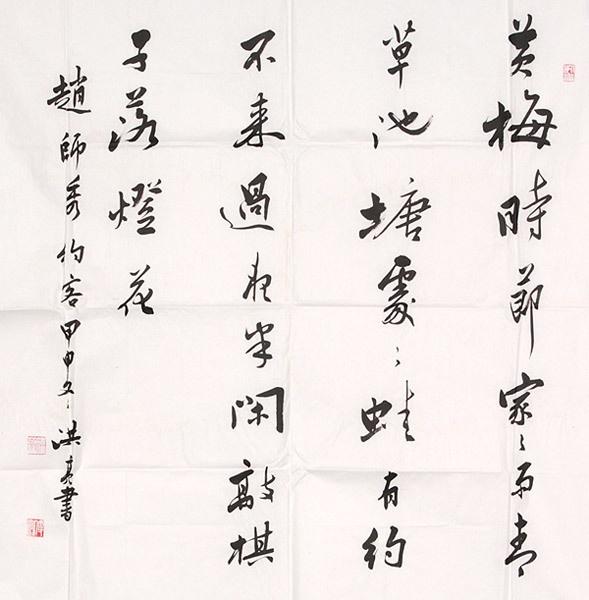 黄梅時節家〻雨青
草池塘處〻蛙有約
不来過夜半閑敲棋
子落燈花
趙師秀約客甲申冬洪書